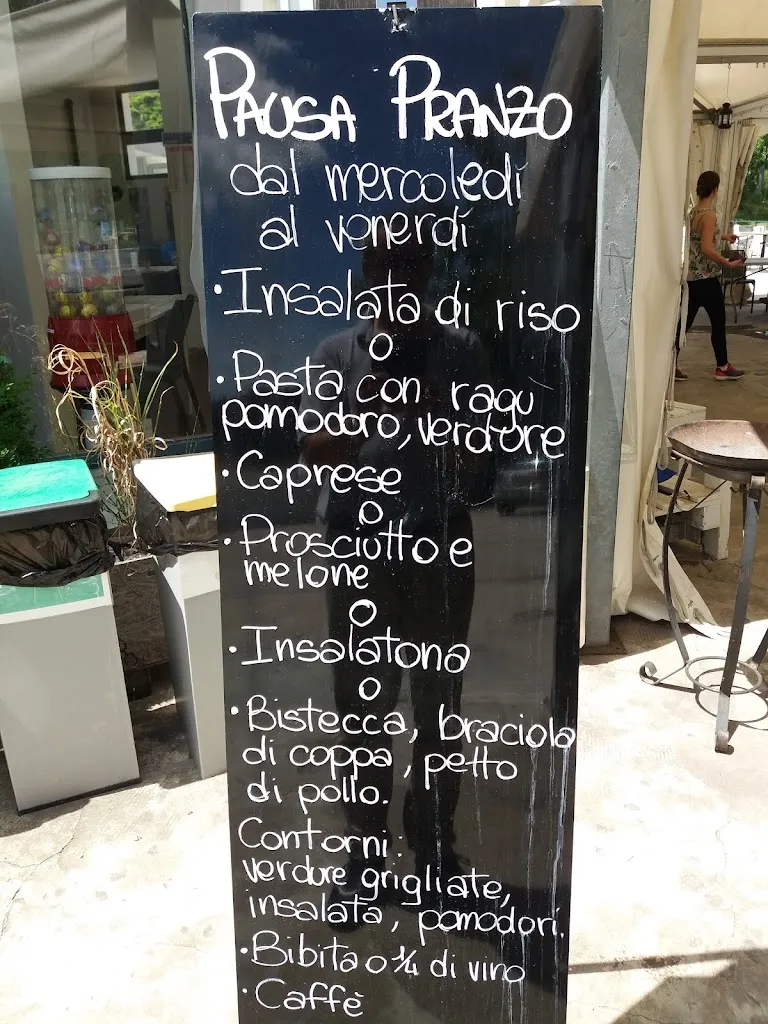 PAUSA PRANZO
dal mercoledí
al venerdí
· Insalata di riso
o
· Pasta con ragu
pomodoro, verdure
· Caprese
o
· Prosciutto e
melone
o
· Insalatona
o
· Bistecca, braciola
di coppa, petto
di pollo.
Contorni:
verdure grigliate,
insalata, pomodori.
· Bibita o ¼ di vino
· Caffè